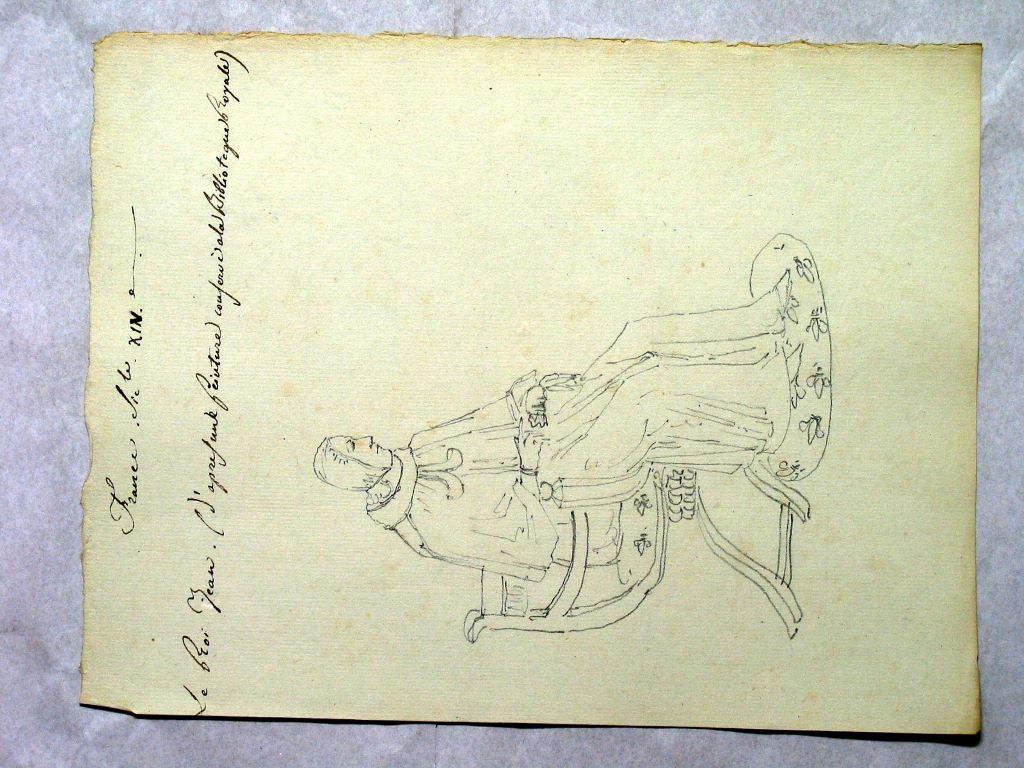 France. Sic le XIV. e
Le Roi Jean. (D'apres une peinture conservé a la Biblioteque Royale)